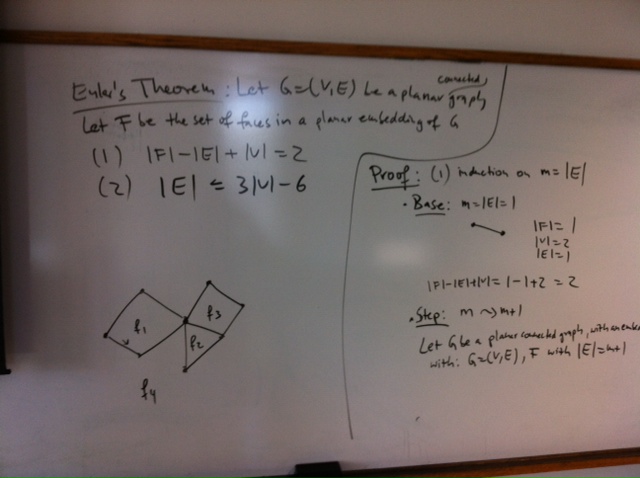 Euler's Theorem: Let G=(V,E) be a planar connected, graph,
Let F be the set of faces in a planar embedding of G
(1) |F|-|E|+|V|=2
(2) |E| ≤ 3|V|-6
f1
v
f2
f3
f4
Proof: (1) induction on m=|E|
• Base: m=|E|=1
|F|=1
|V|=2
|E|=1
|F|-|E|+|V|=1-1+2=2
• Step: m ⇝ m+1
Let G be a planar connected graph, with an embed
with: G=(V,E), F with |E|=m+1